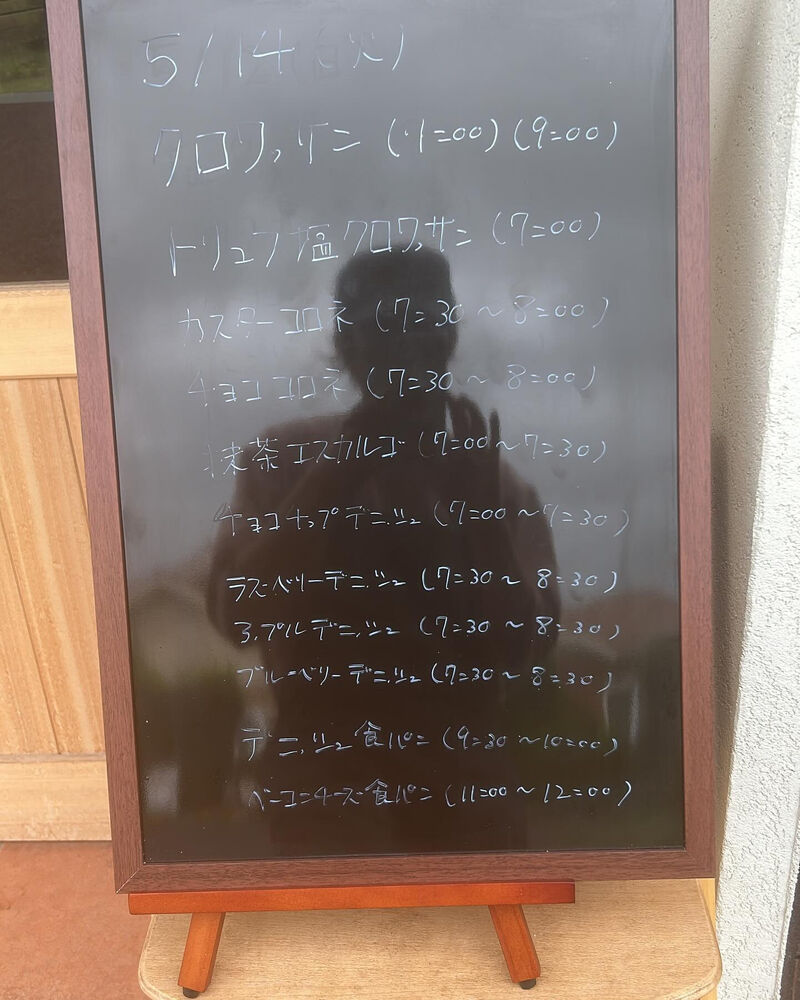 5/14(火)
クロワッサン (7:00)(9:00)
トリュフ塩クロワッサン (7:00)
カスターコロネ (7:30～8:00)
チョココロネ (7:30～8:00)
抹茶エスカルゴ (7:00～7:30)
チョコチップデニッシュ (7:00～7:30)
ラズベリーデニッシュ (7:30～8:30)
アップルデニッシュ (7:30～8:30)
ブルーベリーデニッシュ (7:30～8:30)
デニッシュ食パン (9:30～10:00)
ベーコンチーズ食パン (11:00～12:00)